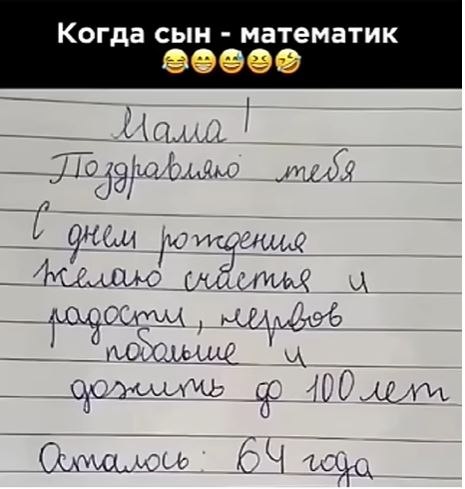 Когда сын - математик
😂😁😅😆🤣
Мама!
Поздравляю тебя
С днем рождения
желаю счастья и
радости, нервов
побольше и
дожить до 100 лет
Осталось: 64 года